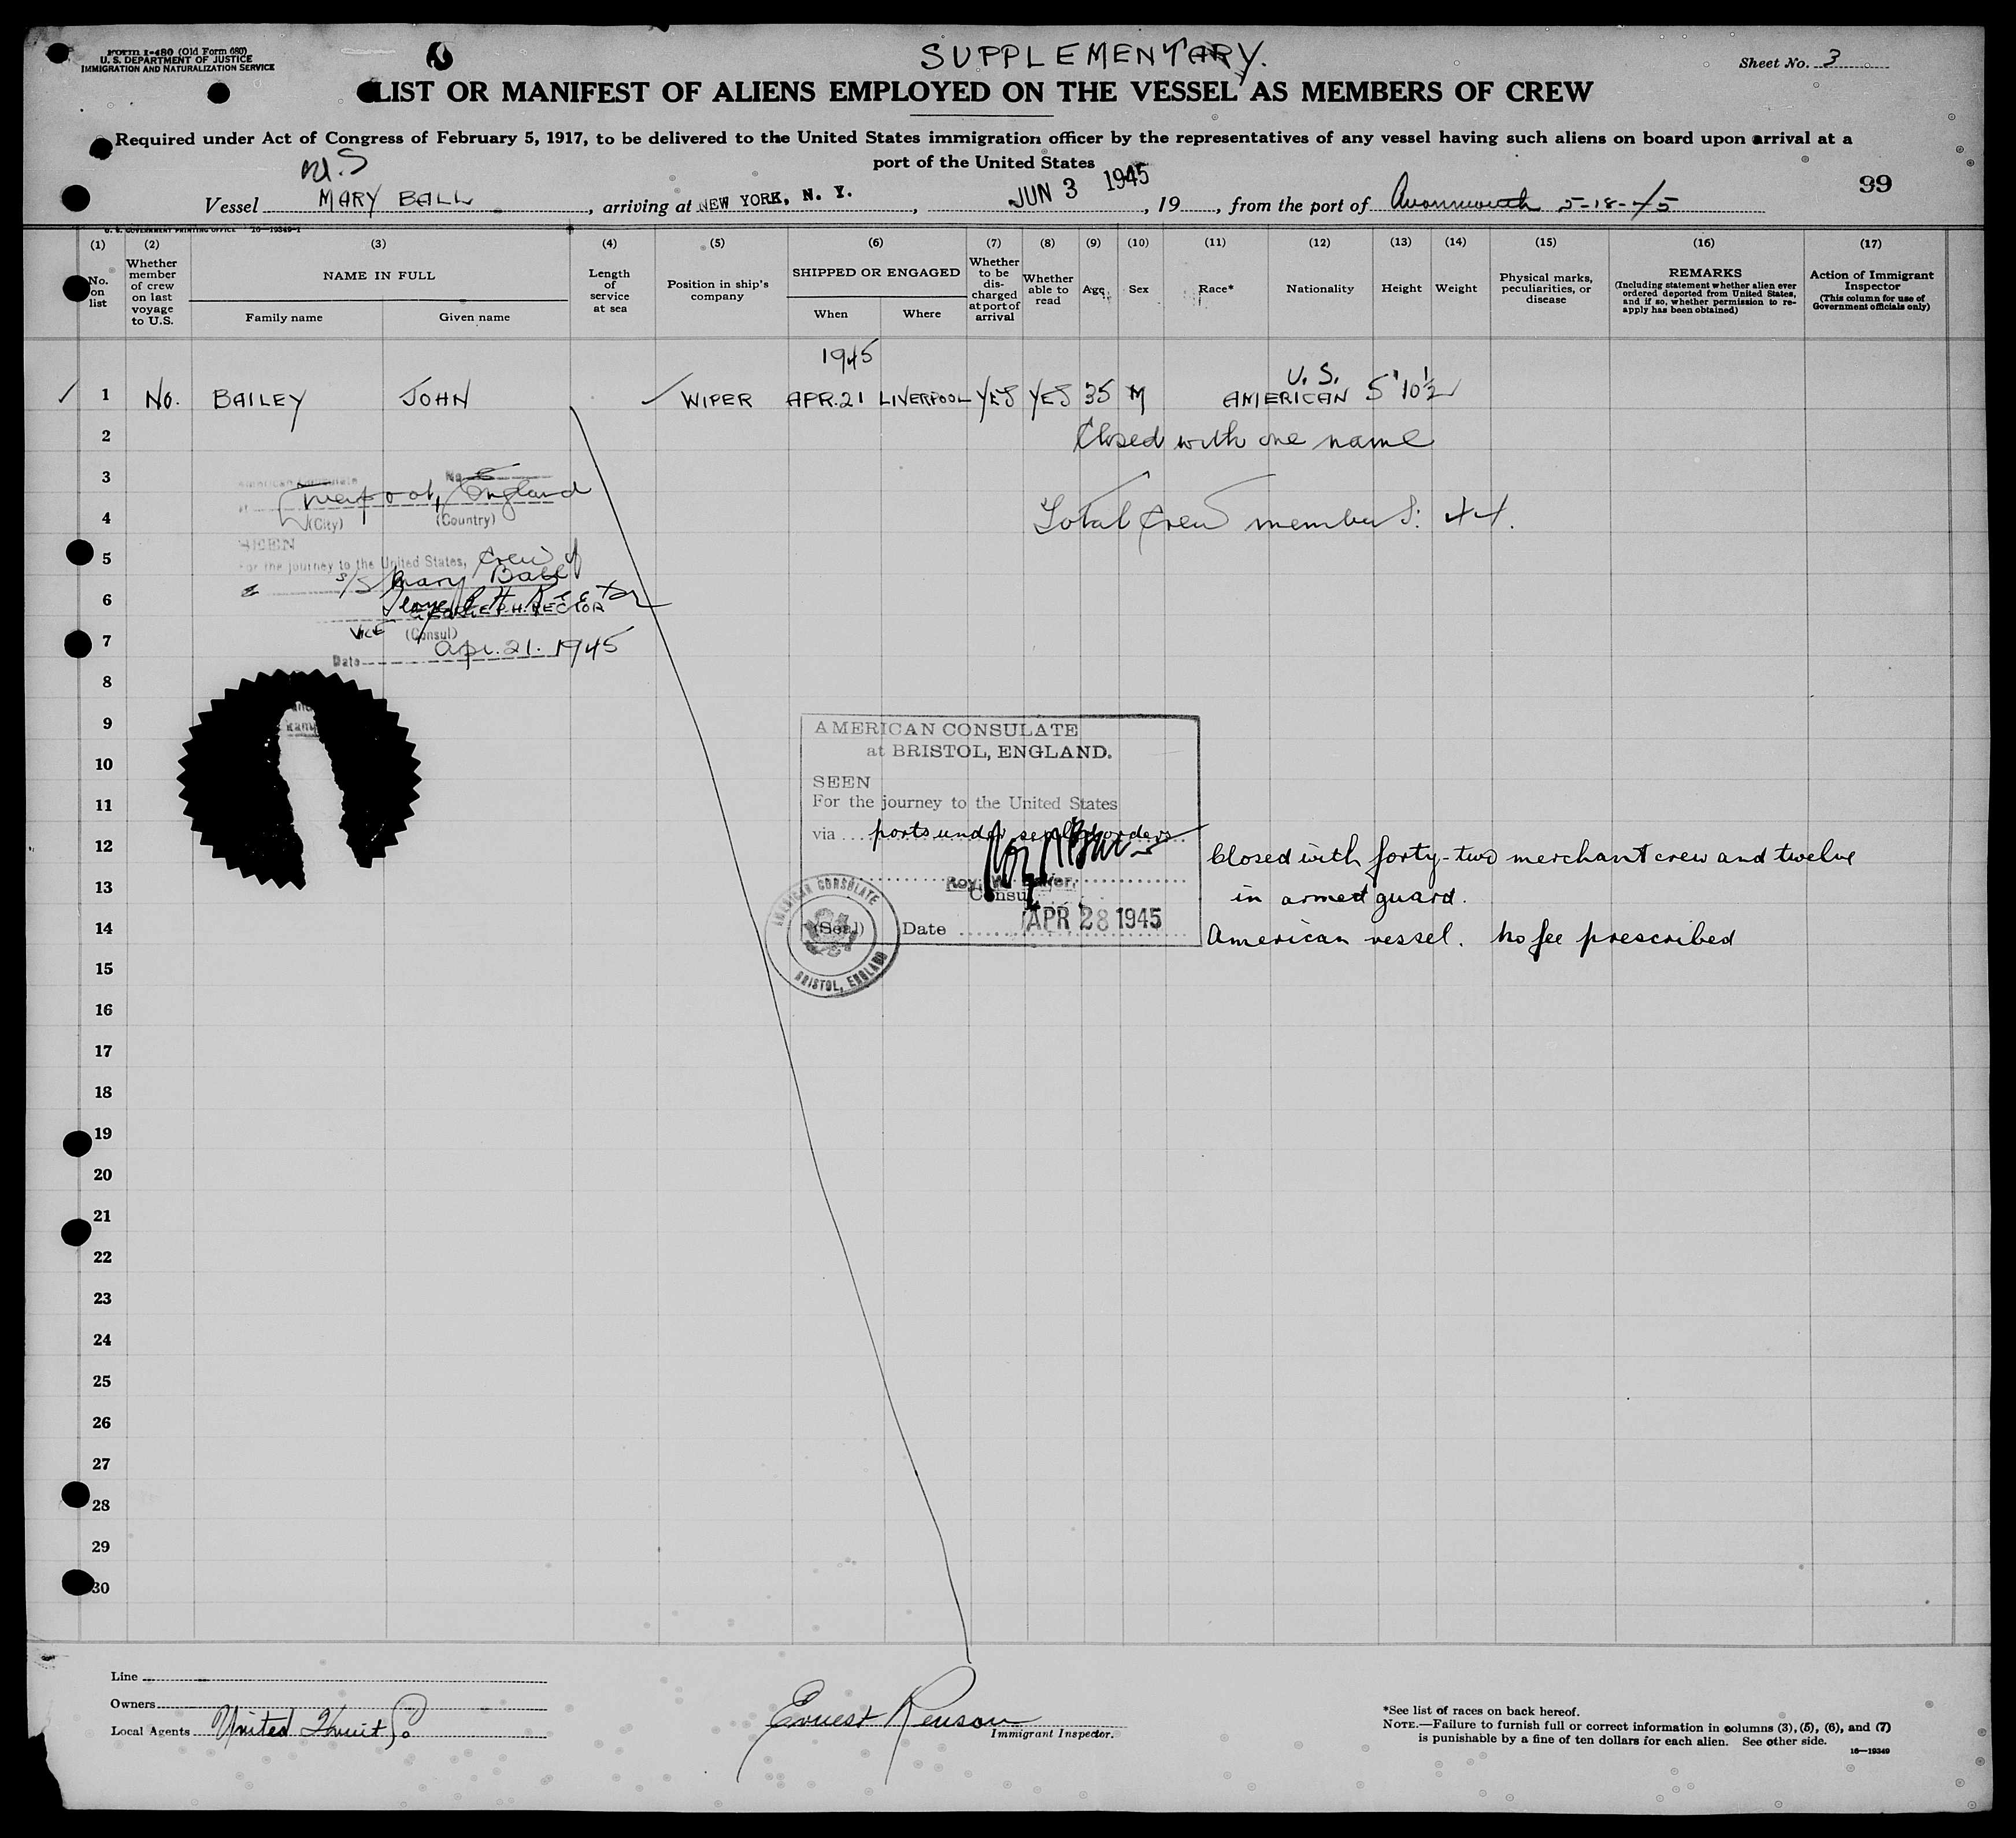 Form I-480 (Old Form 680)
U. S. DEPARTMENT OF JUSTICE
IMMIGRATION AND NATURALIZATION SERVICE
SUPPLEMENTARY.
Sheet No. 3
LIST OR MANIFEST OF ALIENS EMPLOYED ON THE VESSEL AS MEMBERS OF CREW
Required under Act of Congress of February 5, 1917, to be delivered to the United States immigration officer by the representatives of any vessel having such aliens on board upon arrival at a
port of the United States
99
Vessel MARY BALL, arriving at NEW YORK, N. Y., JUN 3 1945, 19, from the port of Avonmouth 5-18-45
U. S. GOVERNMENT PRINTING OFFICE 16—19349-1
(1) (2) (3) (4) (5) (6) (7) (8) (9) (10) (11) (12) (13) (14) (15) (16) (17)
No. on list
Whether member of crew on last voyage to U.S.
NAME IN FULL
Family name Given name
Length of service at sea
Position in ship's company
SHIPPED OR ENGAGED
When Where
Whether to be discharged at port of arrival
Whether able to read
Age
Sex
Race*
Nationality
Height
Weight
Physical marks, peculiarities, or disease
REMARKS
(Including statement whether alien ever ordered deported from United States, and if so, whether permission to reapply has been obtained)
Action of Immigrant Inspector
(This column for use of Government officials only)
1945
U. S.
1 No. BAILEY JOHN WIPER APR. 21 LIVERPOOL YES YES 35 M AMERICAN 5' 10½
2 Closed with one name
3
American Consulate No.
at Liverpool, England
4 Total Crew members: 44.
(City) (Country)
SEEN
5
For the journey to the United States, Crew of
S/S Mary Ball
6
GEORGE H. RECTOR
VICE (Consul)
7
Date Apr. 21. 1945
8
9
AMERICAN CONSULATE
at BRISTOL, ENGLAND.
10
SEEN
11
For the journey to the United States
via ports under sealed orders
12 Closed with forty-two merchant crew and twelve
13 in armed guard.
Consul
(Seal) Date APR 28 1945
AMERICAN CONSULATE
BRISTOL, ENGLAND
14 American vessel. No fee prescribed
15
16
17
18
19
20
21
22
23
24
25
26
27
28
29
30
Line
Owners
Local Agents United Fruit Co
Ernest Renson
Immigrant Inspector.
*See list of races on back hereof.
NOTE.—Failure to furnish full or correct information in columns (3), (5), (6), and (7)
is punishable by a fine of ten dollars for each alien. See other side.
16—19349